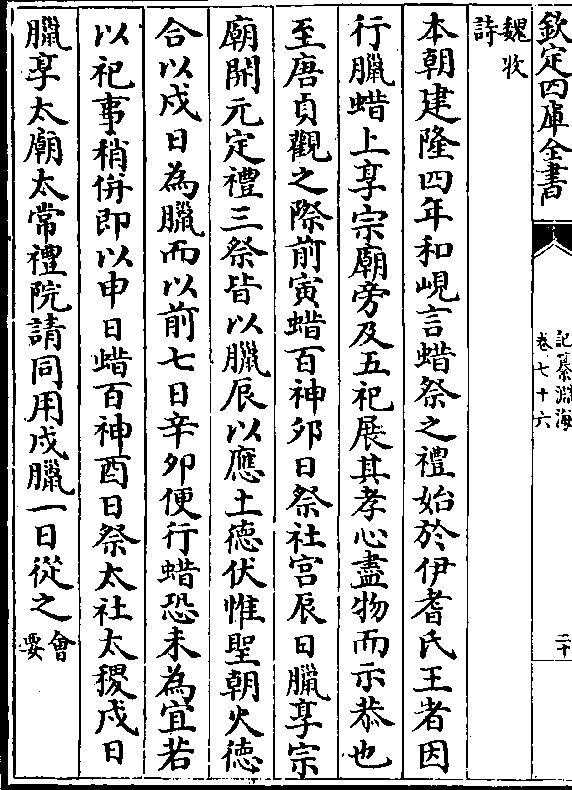 欽定四庫全書
記纂淵海
卷七十六
二十
魏收
詩
本朝建隆四年和峴言蜡祭之禮始於伊耆氏王者因
行臘蜡上享宗廟旁及五祀展其孝心盡物而示恭也
至唐貞觀之際前寅蜡百神卯日祭社宫辰日臘享宗
廟開元定禮三祭皆以臘辰以應土德伏惟聖朝火德
合以戍日為臘而以前七日辛卯便行蜡恐未為宜若
以祀事稍併即以申日蜡百神酉日祭太社太稷戍日
臘享太廟太常禮院請同用戍臘一日從之
會
要